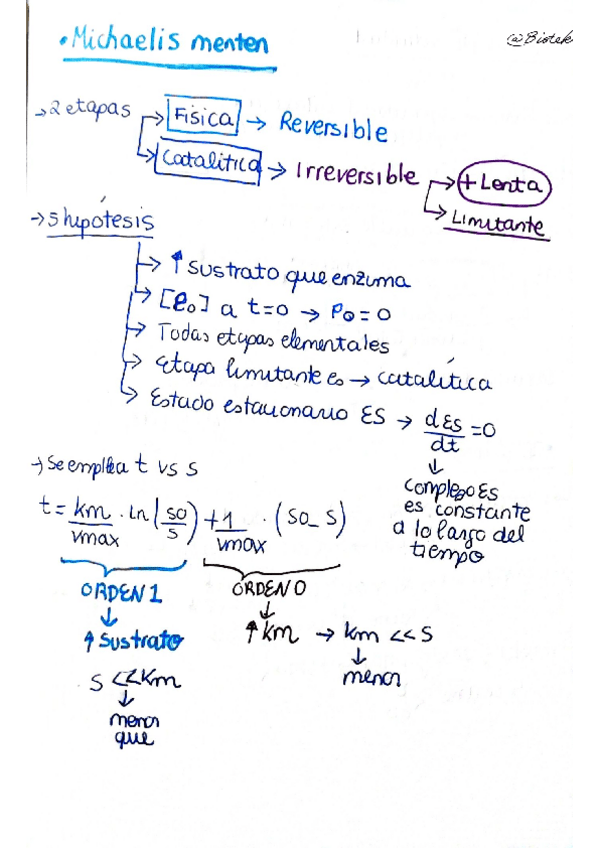 • Michaelis menten
@Biotek
→ 2 etapas → Física → Reversible
→ Catalítica → Irreversible → + Lenta
→ Limitante
→ 5 hipótesis
→ ↑ Sustrato que enzima
→ [e₀] a t=0 → P₀ = 0
→ Todas etapas elementales
→ Etapa limitante es → catalítica
→ Estado estacionario ES → dES/dt = 0
↓
complejo ES
es constante
a lo largo del
tiempo
→ Se emplea t vs s
t = km/vmax · Ln (so/s) + 1/vmax · (so - s)
ORDEN 1
↓
↑ Sustrato
S <<Km
↓
menor
que
ORDEN 0
↓
↑ km → km << S
↓
menor